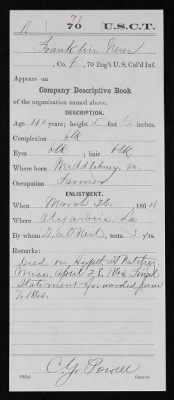 71
N 70 U.S.C.T.
Franklin
, Co. F, 70 Reg't U. S. Col'd Inf.
Appears on
Company Descriptive Book
of the organization named above.
DESCRIPTION.
Age years; height 5 feet 6 inches.
Complexion blk
Eyes blk; hair blk
Where born
Occupation Farmer
ENLISTMENT.
When March 26, 1864
Where Alexandria, La
By whom D. C. O'Neil; term 3 y'rs.
Remarks:
Died in Hospt at Natchez
Miss. April 28, 1864. Final
Statement forwarded
1864.
Powell
Copyist.